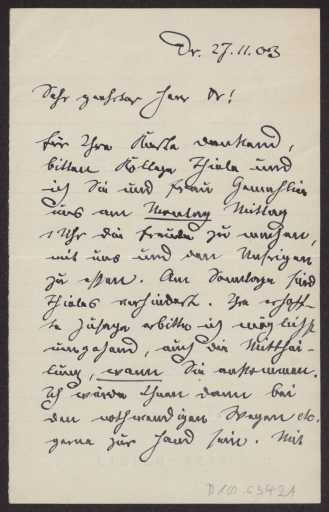 Dr. 27.11.03
Sehr geehrter Herr Dr!
für Ihre Karte dankend,
bitten Kollege Thiele und
ich Sie und Frau Gemahlin
uns am Montag Mittag
1 Uhr die Freude zu machen,
mit uns und den Unsrigen
zu essen. Am Sonntage sind
Thieles verhindert. Ihre erhoff-
te Zusage erbitte ich möglichst
umgehend, auch die Mitthei-
lung, wann Sie ankommen.
Ich würde Ihnen dann bei
den nothwendigen Wegen etc.
gerne zur Hand sein. Mit